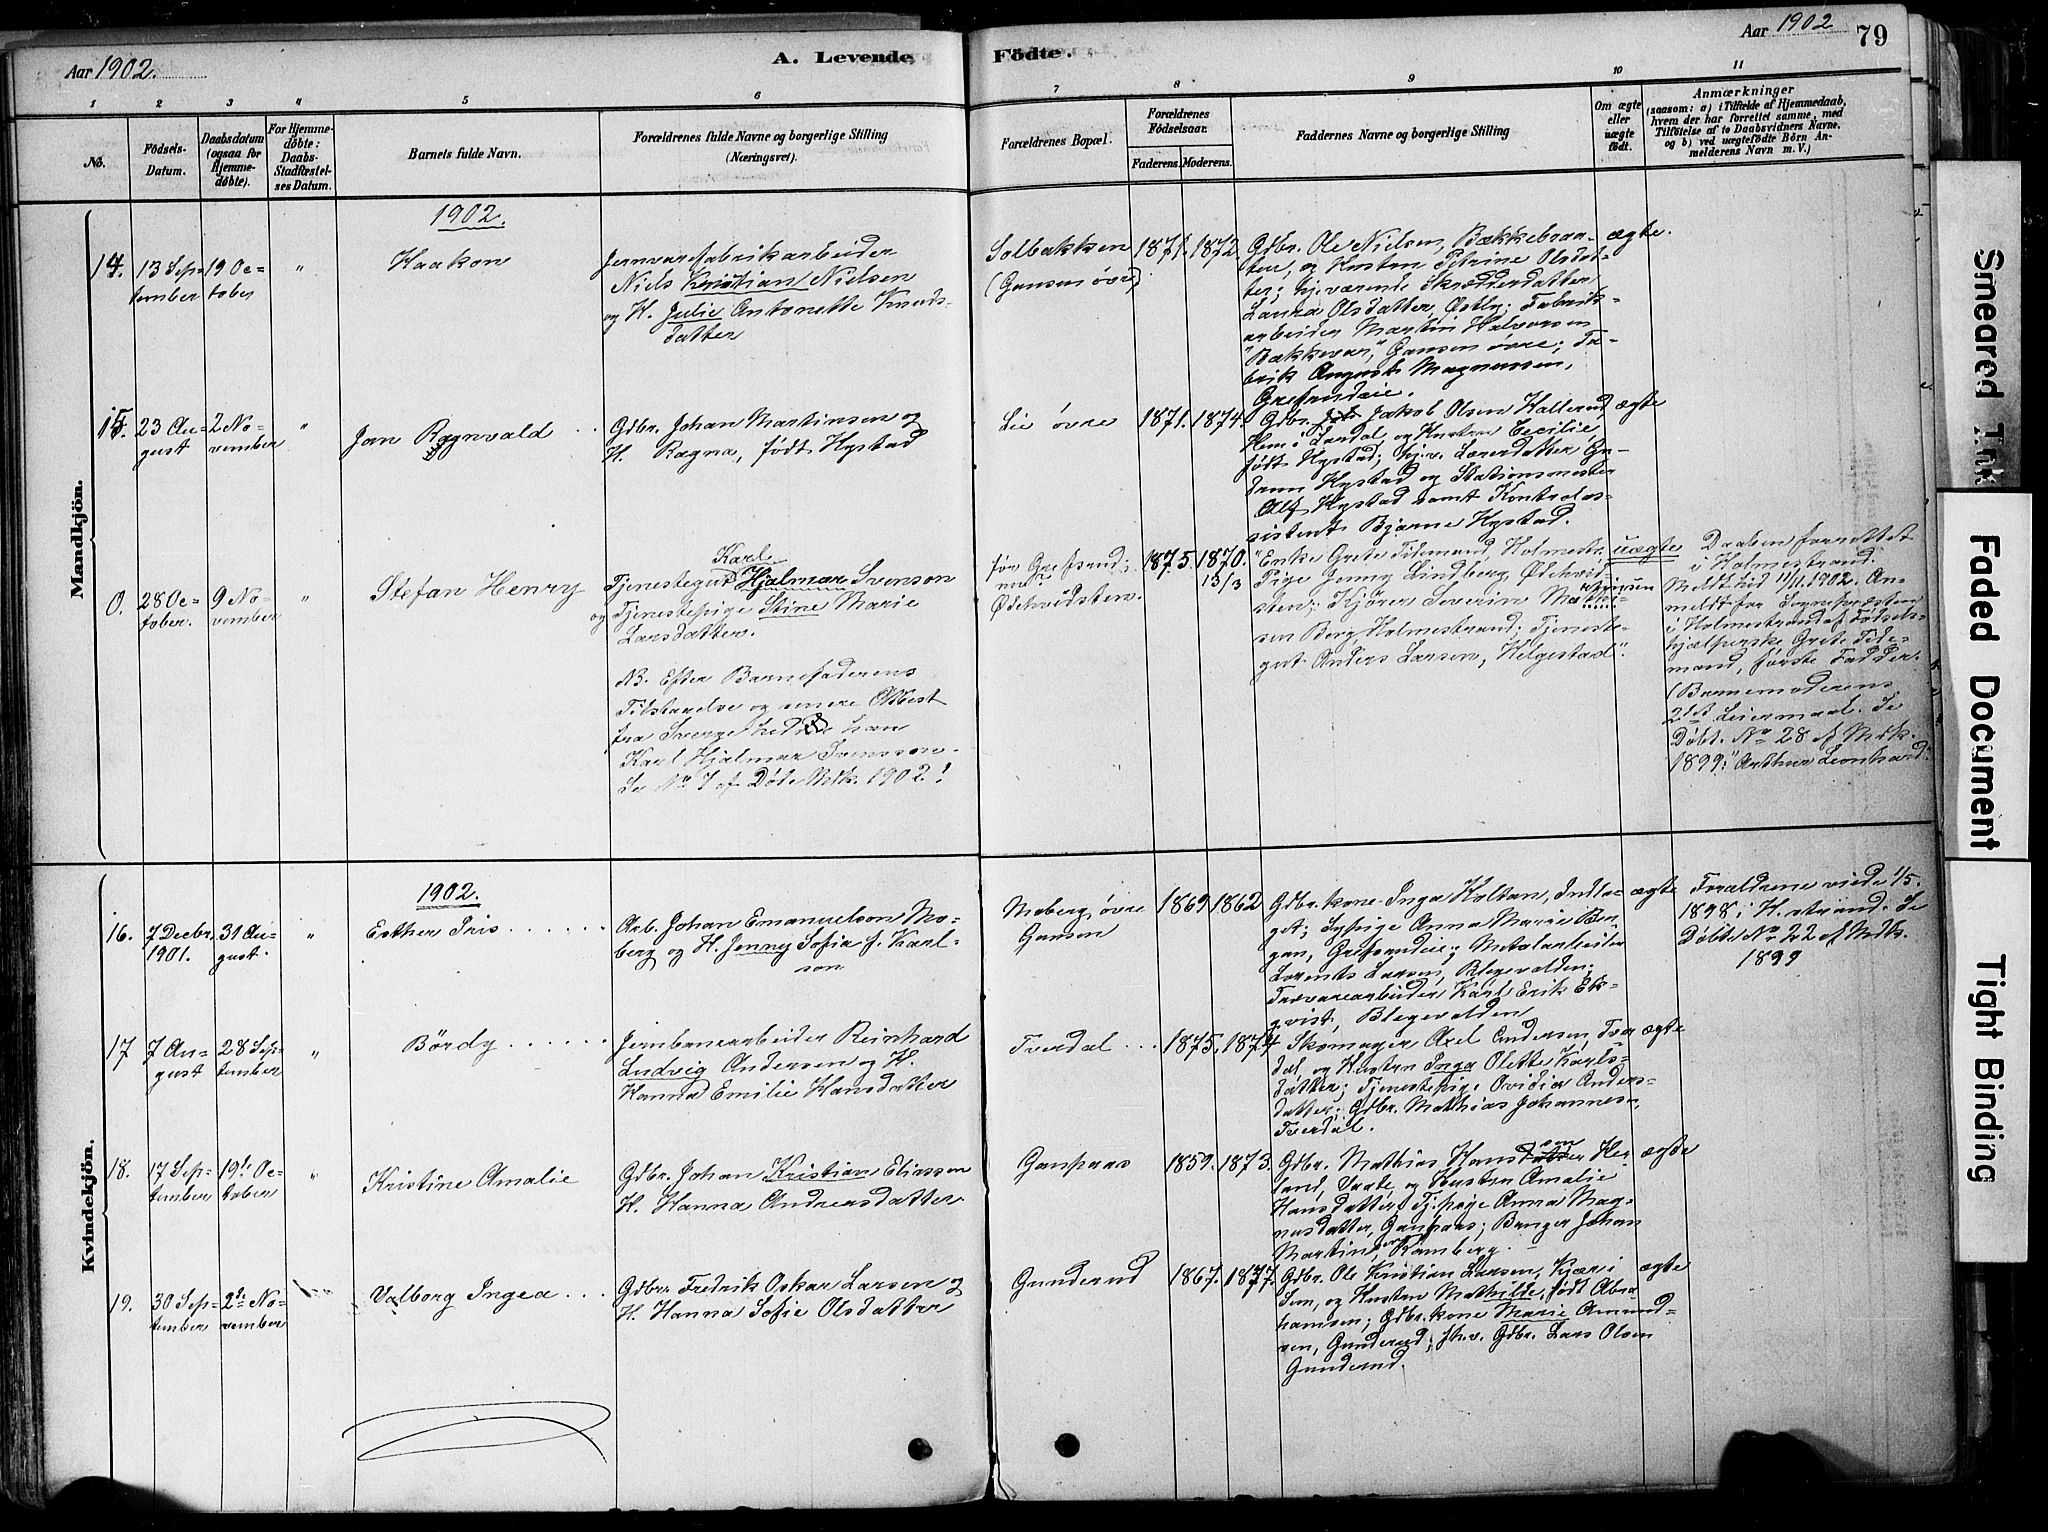 Aar 1902.
A. Levende
Födte.
Aar 1902
79
1
2
3
4
5
6
7
8
9
10
11
No.
Födsels-
Datum.
Daabsdatum
(ogsaa for
Hjemme-
døbte).
For Hjemme-
døbte:
Daabs-
Stadfæstel-
ses Datum.
Barnets fulde Navn.
Forældrenes fulde Navne og borgerlige Stilling
(Næringsvei).
Forældrenes Bopæl.
Forældrenes
Födselsaar.
Faderens.
Moderens.
Faddernes Navne og borgerlige Stilling
Om ægte
eller
uægte
født.
Anmærkninger
(saasom: a) i Tilfælde af Hjemmedaab,
hvem der har forrettet samme, med
Tilföielse af to Daabsvidners Navne,
og b) ved uægtefödte Börn An-
melderens Navn m. V.)
Mandkjön.
1902.
14.
13 Sep-
tember
19 Oc-
tober
"
Haakon
Jernvarefabrikarbeider
Niels Kristian Nielsen
og H. Julie Antonette Knuds-
datter
Solbakken
(Gausen øvre)
1871.
1872.
Gdbr. Ole Nielsen, Bækkebraa-
ten, og Hustru Petrine Olsdat-
ter; hjeværende Skrædderdatter
Laura Olsdatter, Østby; Fabrik-
arbeider Martin Halvorsen
"Bækkevar," Gausen øvre; Fa-
brik August Magnussen,
Grefsrudeie.
ægte.
15.
23 Au-
gust
2 No-
vember
"
Jan Ragnvald
Gdbr. Johan Martinsen og
H. Ragna, født Hystad
Lie øvre
1871.
1874.
Gdbr. Jakob Olsen Hallerud,
Hem i Lardal, og Hustru Cecilie,
født Hystad; hjv. Lærerdatter Gu-
drun Hystad og Stationsmester
Alf Hystad samt Kontroløs-
sistent Bjarne Hystad.
ægte
0.
28 Oc-
tober.
9 No-
vember
"
Stefan Henry
Karl
Tjenestegut Hjalmar Svenson
og Tjenestepige Stine Marie
Larsdatter.
NB. Efter Barnefaderens
Tilstaaelse og senere Attest
fra Sverge hedte han
Karl Hjalmar Svensson.
Se No 7 af Døbte Mtk. 1902.!
før Grefsrud;
nu
Ødekvidsten.
1875.
1870.
13/3
"Enke Grete Tidemand, Holmestr.
Pige Jenny Lindberg, Ødekvid-
sten; Kjører Severin Mathi-
sen Berg, Holmestrand; Tjeneste-
gut Anders Larsen, Helgestad".
uægte
Daaben forrettet
i Holmestrand.
Meldt hid 11/11. 1902. An-
meldt for Sognepræsten
i Holmestrand af Fødsels-
hjælperske Grete Tide-
mand, første Fadder.
(Barnemoderens
2det Leiermaal. Se
Døbt. No 28 af Mtk.
1899: "Arthur Leonhard"
Kvindekjön.
1902.
16.
7 Decbr.
1901.
31 Au-
gust.
"
Esther Iris
Arb. Johan Emanuelson Mo-
berg og H. Jenny Sofia f. Karl-
son
Moberg, øvre
Gausen
1869
1862
Gdbr. kone Inga Holtan, Indla-
get; Sypige Anna Marie Ber-
gan, Grefsrudeie; Metalarbeider
Lorents Larsen, Blegevolden;
Trævarearbeider Karl Erik Ek-
qvist, Blegevolden
ægte
Forældrene viede 1/5.
1898 i H.strand. Se
Døbte No 22 af Mtk.
1899
17
7 Au-
gust
28 Sep-
tember
"
Bördy
Jernbanearbeider Reinhard
Ludvig Andersen og H.
Hanna Emilie Hansdatter
Tverdal
1875.
1874
Skomager Axel Andersen, Tver
dal, og Hustru Inga Olette Karls-
datter; Tjenestepige Ovidia Anders-
datter; Gdbr. Mathias Johannesn,
Tverdal.
ægte
18.
17 Sep-
tember
19de Oc-
tober
"
Kristine Amalie
Gdbr. Johan Kristian Eliassen
H. Hanna Andreasdatter.
Gaupaas
1859.
1873.
Gdbr. Mathias Hansen Hei-
land, Vaale, og Hustru Amalie
Hansdatter; Tj.pige Anna Mag-
nusdatter, Gaupaas; Banger Johan
Martinsen, Ramberg.
ægte
19.
30 Sep-
tember
2de No-
vember
Valborg Ingea
Gdbr. Fredrik Oskar Larsen og
H. Hanna Sofie Olsdatter
Gunderud
1867.
1877.
Gdbr. Ole Kristian Larsen, Kjær i
Sem, og Hustru Mathilde, født Abra
hamsen; Gdbr.kone Marie Amund-
sen, Gunderud; fh.v. Gdbr. Lars Olsen
Gunderud.
ægte
Smeared Ink
Faded Document
Tight Binding